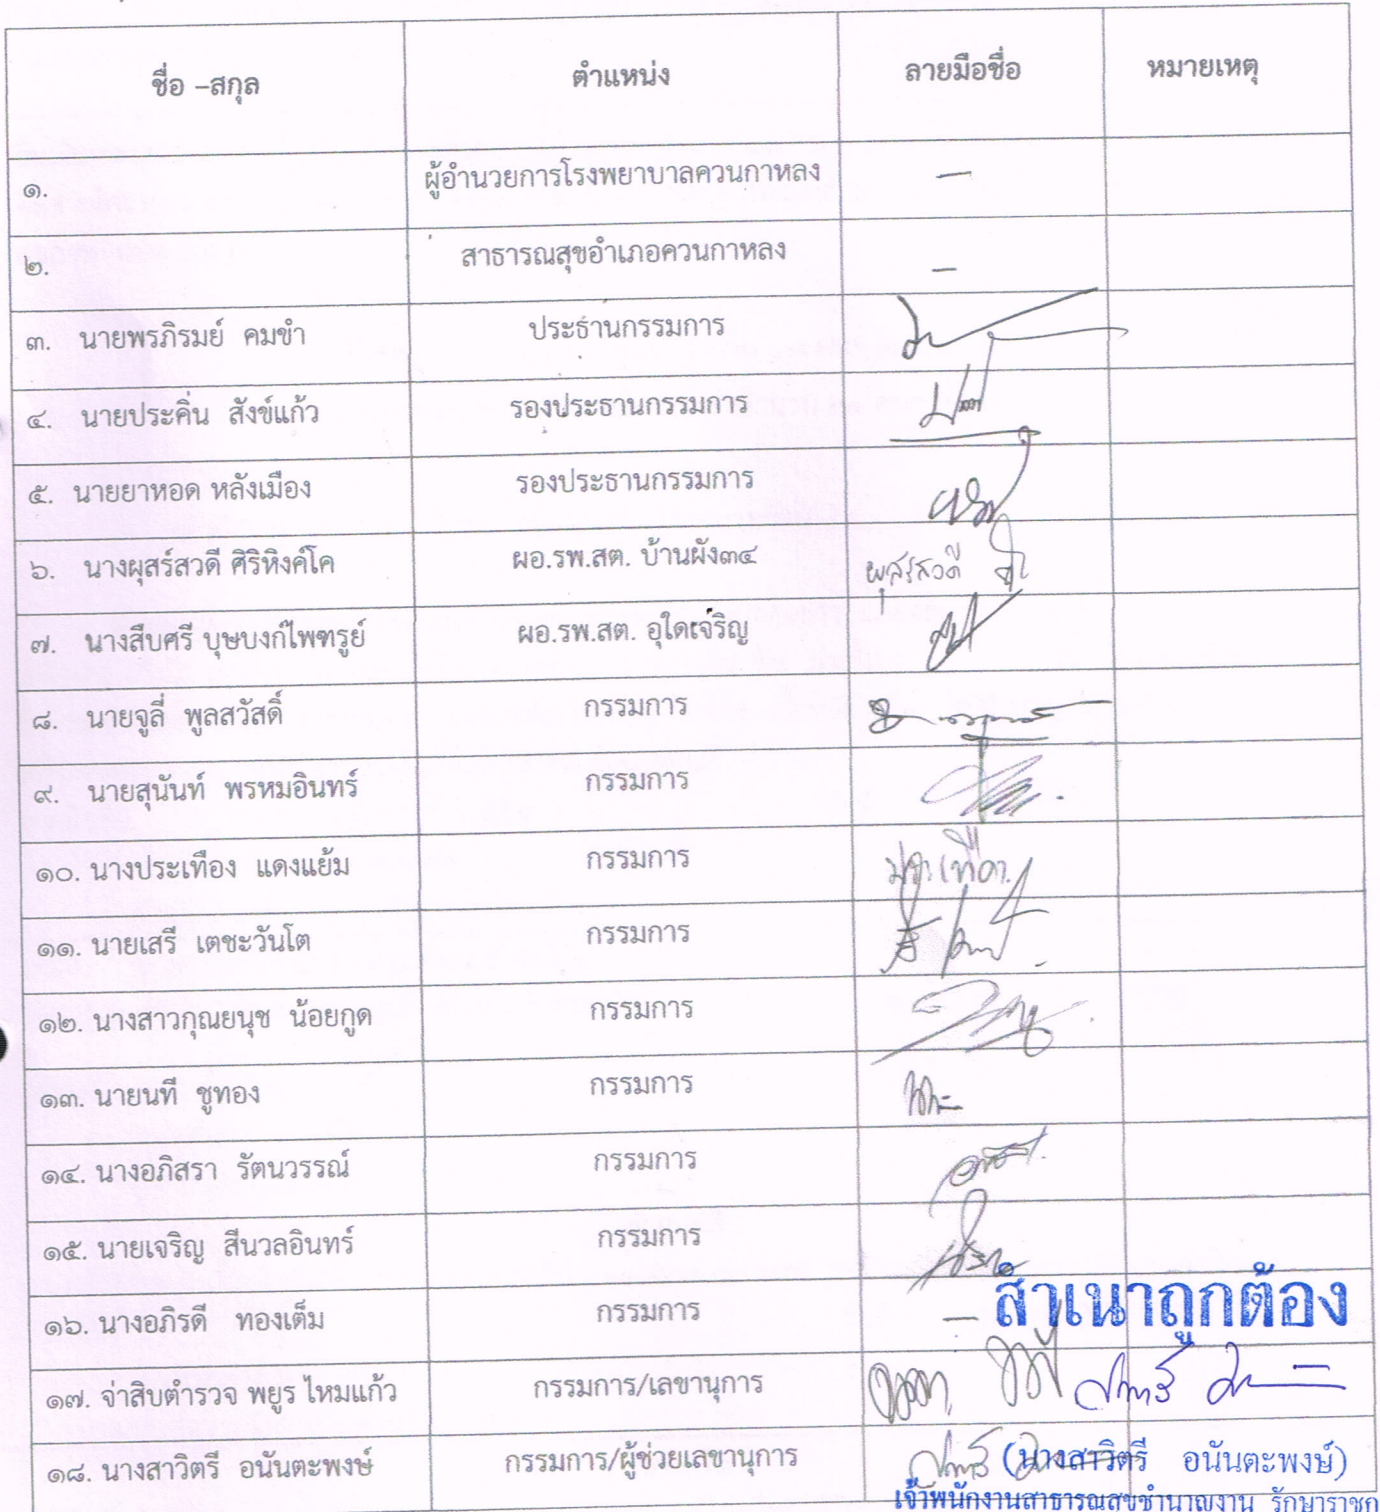 ชื่อ –สกุล ตำแหน่ง ลายมือชื่อ หมายเหตุ
๑. ผู้อำนวยการโรงพยาบาลควนกาหลง —
๒. สาธารณสุขอำเภอควนกาหลง —
๓. นายพรภิรมย์ คมขำ ประธานกรรมการ
๔. นายประคิ่น สังข์แก้ว รองประธานกรรมการ
๕. นายยาหอด หลังเมือง รองประธานกรรมการ
๖. นางผุสร์สวดี ศิริหิงค์โค ผอ.รพ.สต. บ้านผัง๓๔ ผุสร์สวดี
๗. นางสืบศรี บุษบงก์ไพฑรูย์ ผอ.รพ.สต. อุใดเจริญ
๘. นายจูลี่ พูลสวัสดิ์ กรรมการ
๙. นายสุนันท์ พรหมอินทร์ กรรมการ
๑๐. นางประเทือง แดงแย้ม กรรมการ
๑๑. นายเสรี เตชะวันโต กรรมการ
๑๒. นางสาวกุณยนุช น้อยกูด กรรมการ
๑๓. นายนที ชูทอง กรรมการ
๑๔. นางอภิสรา รัตนวรรณ์ กรรมการ
๑๕. นายเจริญ สีนวลอินทร์ กรรมการ
๑๖. นางอภิรดี ทองเต็ม กรรมการ —
สำเนาถูกต้อง
๑๗. จ่าสิบตำรวจ พยูร ไหมแก้ว กรรมการ/เลขานุการ
๑๘. นางสาวิตรี อนันตะพงษ์ กรรมการ/ผู้ช่วยเลขานุการ
(นางสาวิตรี อนันตะพงษ์)
เจ้าพนักงานสาธารณสุขชำนาญงาน รักษาราชก